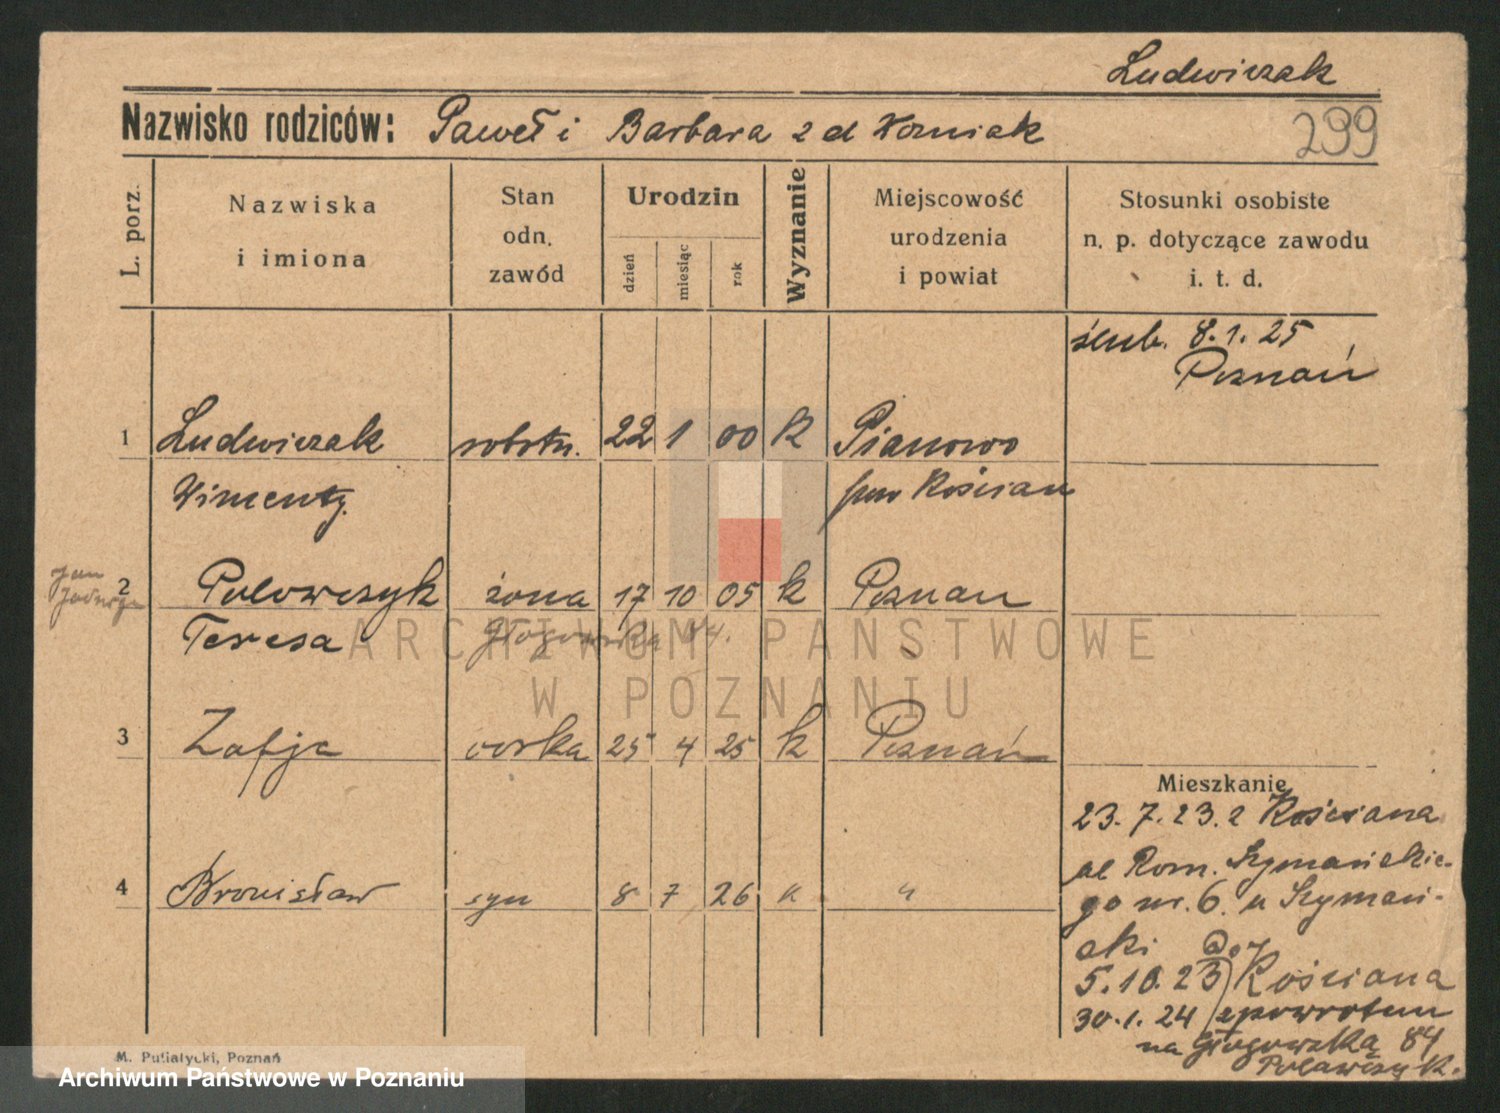 Ludwiczak
Nazwisko rodziców: Paweł i Barbara z d Woźniak
299
L. porz.
Nazwiska
i imiona
Stan
odn.
zawód
Urodzin
dzień
miesiąc
rok
Wyznanie
Miejscowość
urodzenia
i powiat
Stosunki osobiste
n. p. dotyczące zawodu
i. t. d.
ślub. 8.1.25
Poznań
1 Ludwiczak robotn. 22 1 00 k Pianowo
Winenty. pow Kościan
Jan
Jadwiga
2 Polowczyk żona 17 10 05 k Poznan
Teresa Głogowska 84.
ARCHIWUM PAŃSTWOWE
W POZNANIU
3 Zofja corka 25 4 25 k Poznań
4 Bronisław syn 8 7 26 " "
Mieszkanie
23. 7. 23. z Kościana
Rom. Szymańskie-
go nr. 6. u Szymań-
ski
5.10.23 do Kościana
30.1.24 zpowrotem
na Głogowską 84
Polowczyk.
M. Putiatycki, Poznań
Archiwum Państwowe w Poznaniu